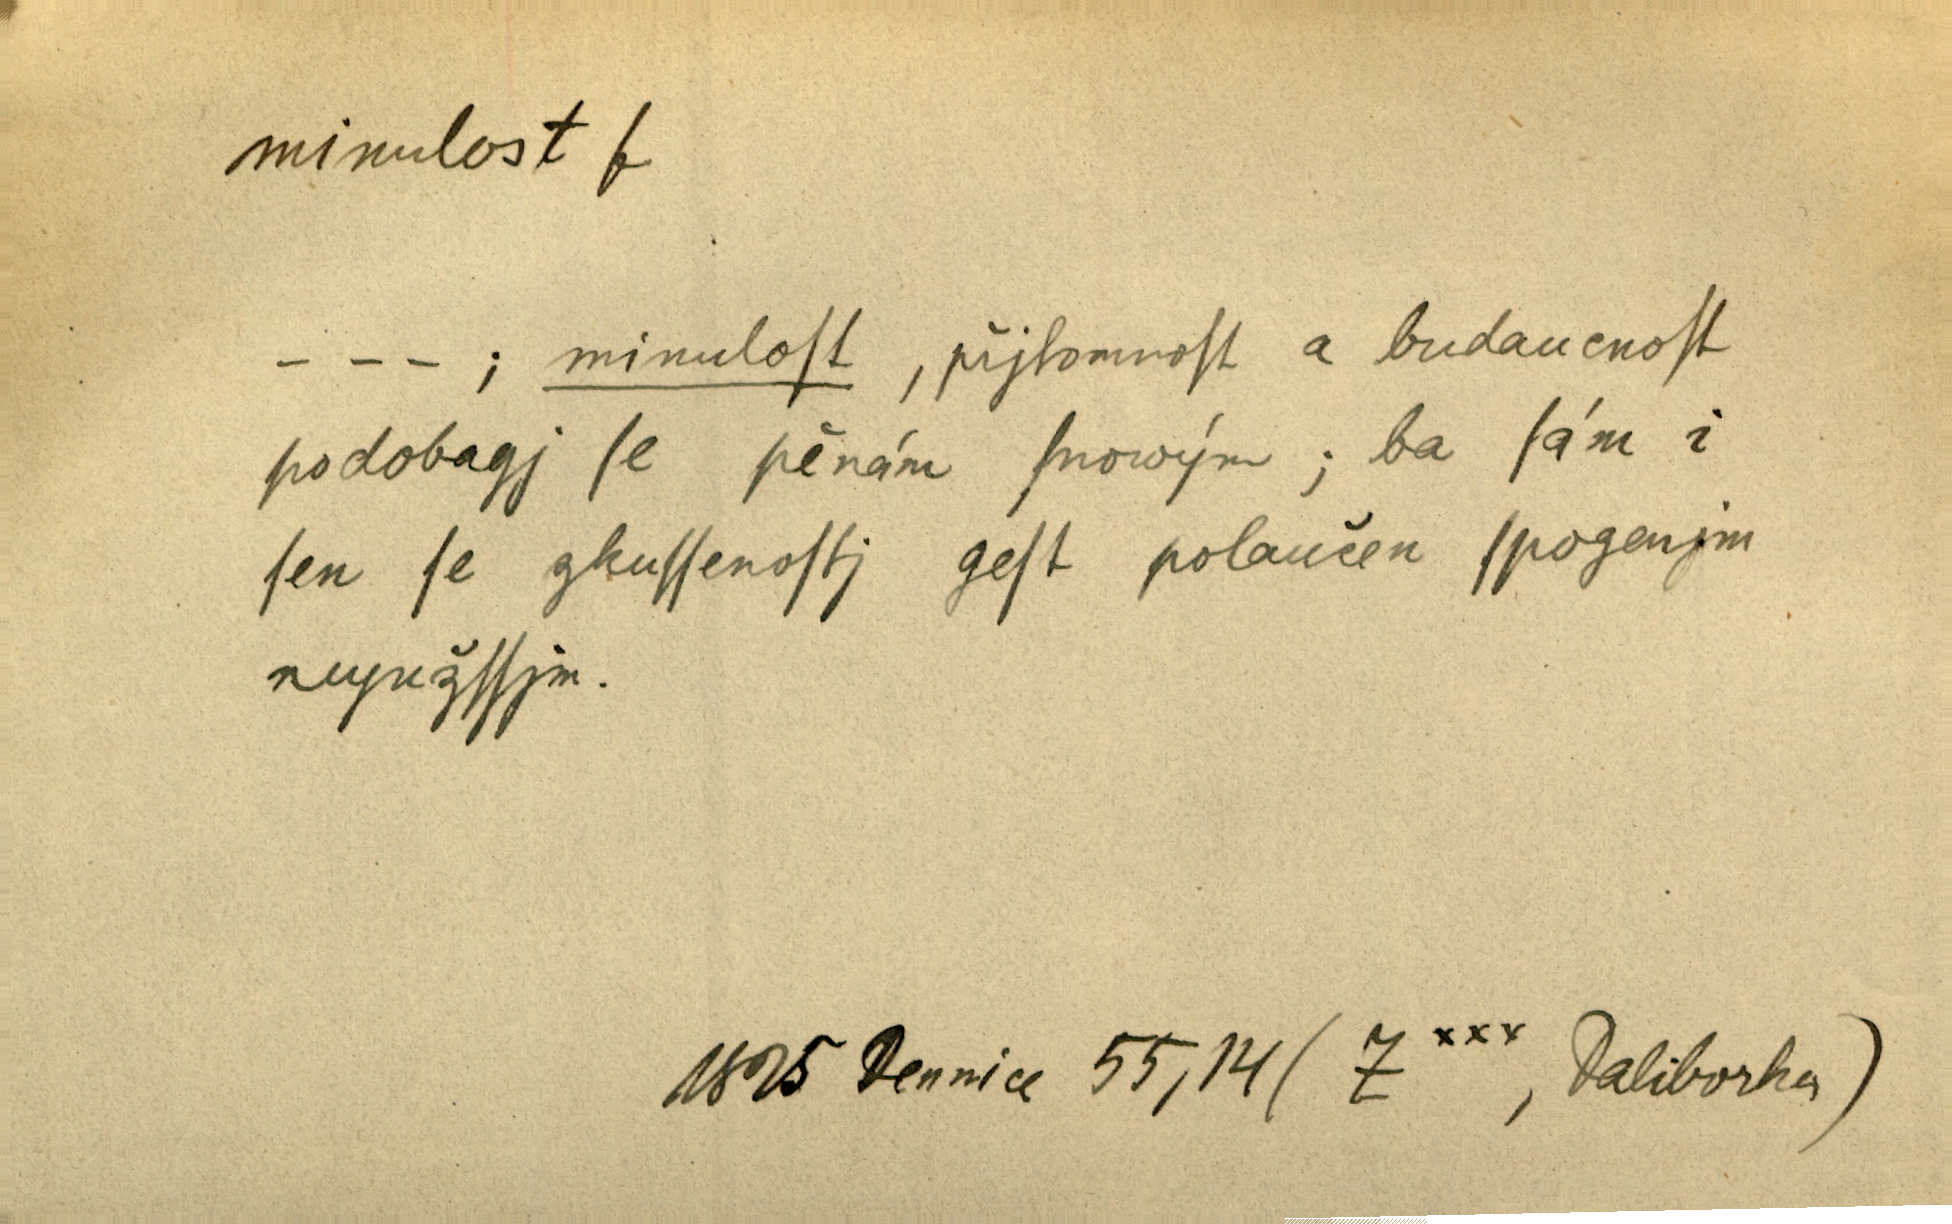 minulost f
- - - ; minuloſt , přjtomnoſt a budaucnoſt
podobagj ſe pěnám ſnowým ; ba ſám i
ſen ſe zkuſſenoſtj geſt polaučen ſpogenjm
neyužſſjm.
1825 Dennice 55,14 ( Z xxx , Daliborka )